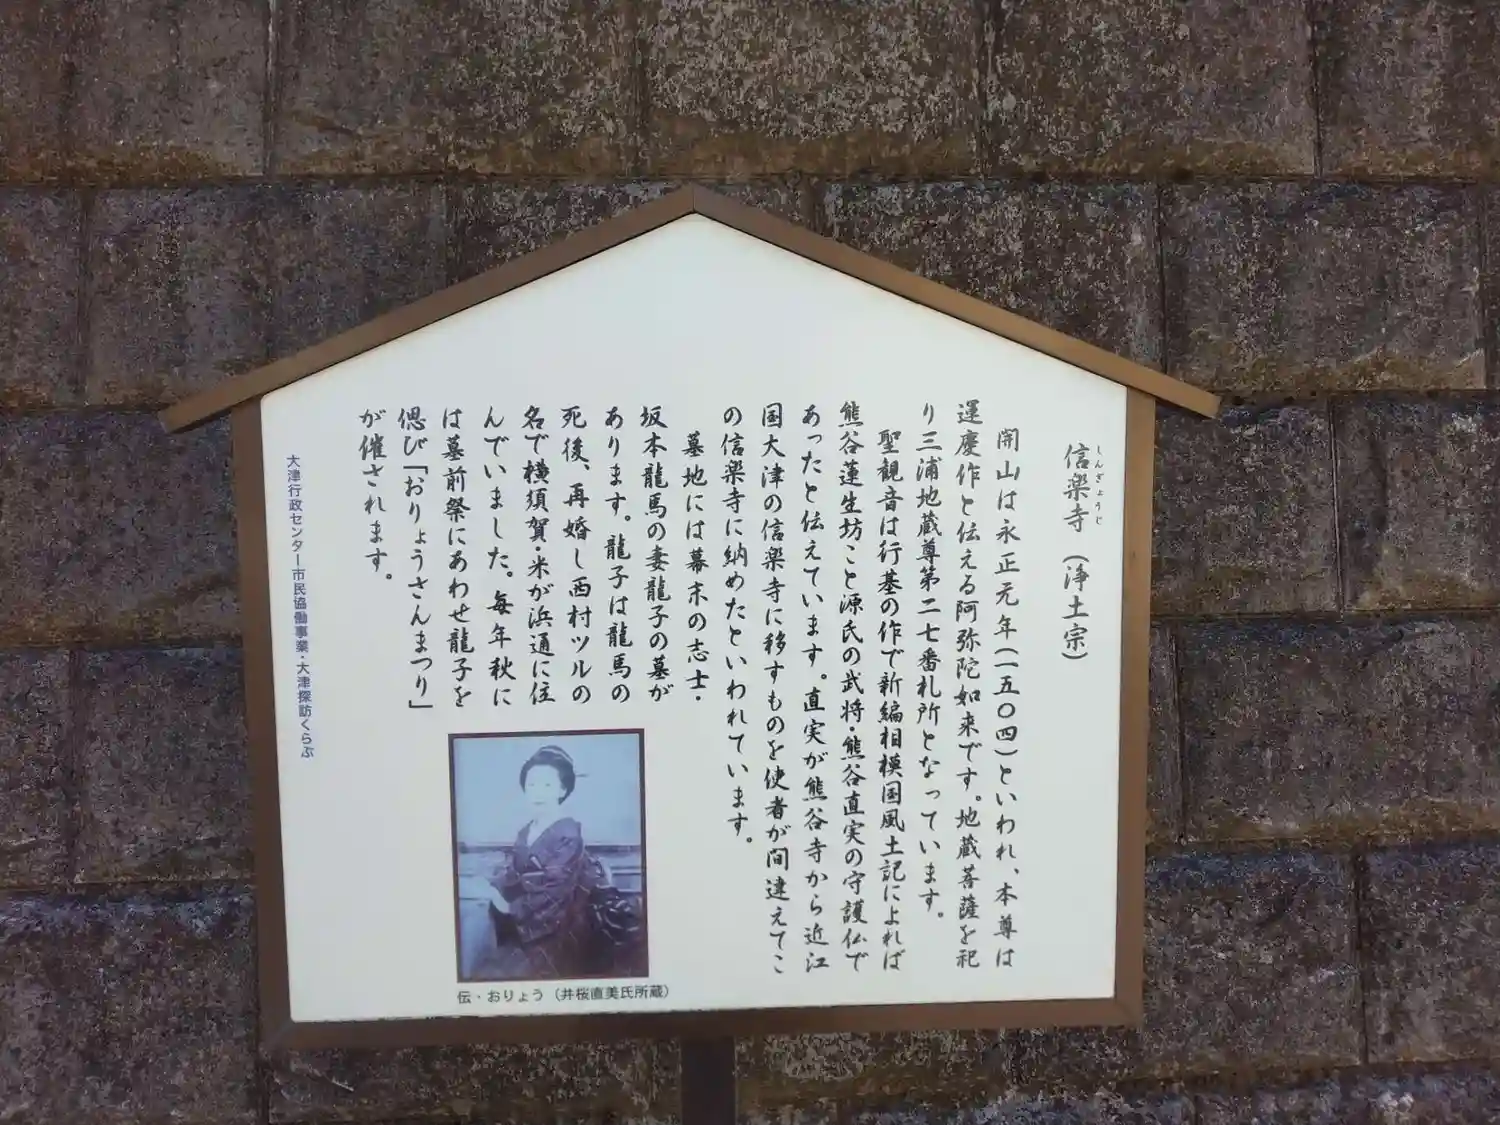 しんぎょうじ
信楽寺 (浄土宗)
開山は永正元年(一五〇四)といわれ、本尊は
運慶作と伝える阿弥陀如来です。地蔵菩薩を祀
り三浦地蔵尊第二七番札所となっています。
聖観音は行基の作で新編相模国風土記によれば
熊谷蓮生坊こと源氏の武将・熊谷直実の守護仏で
あったと伝えています。直実が熊谷寺から近江
国大津の信楽寺に移すものを使者が間違えてこ
の信楽寺に納めたといわれています。
墓地には幕末の志士・
坂本龍馬の妻龍子の墓が
あります。龍子は龍馬の
死後、再婚し西村ツルの
名で横須賀・米が浜通に住
んでいました。毎年秋に
は墓前祭にあわせ龍子を
偲び「おりょうさんまつり」
が催されます。
大津行政センター市民協働事業・大津探訪くらぶ
伝・おりょう(井桜直美氏所蔵)